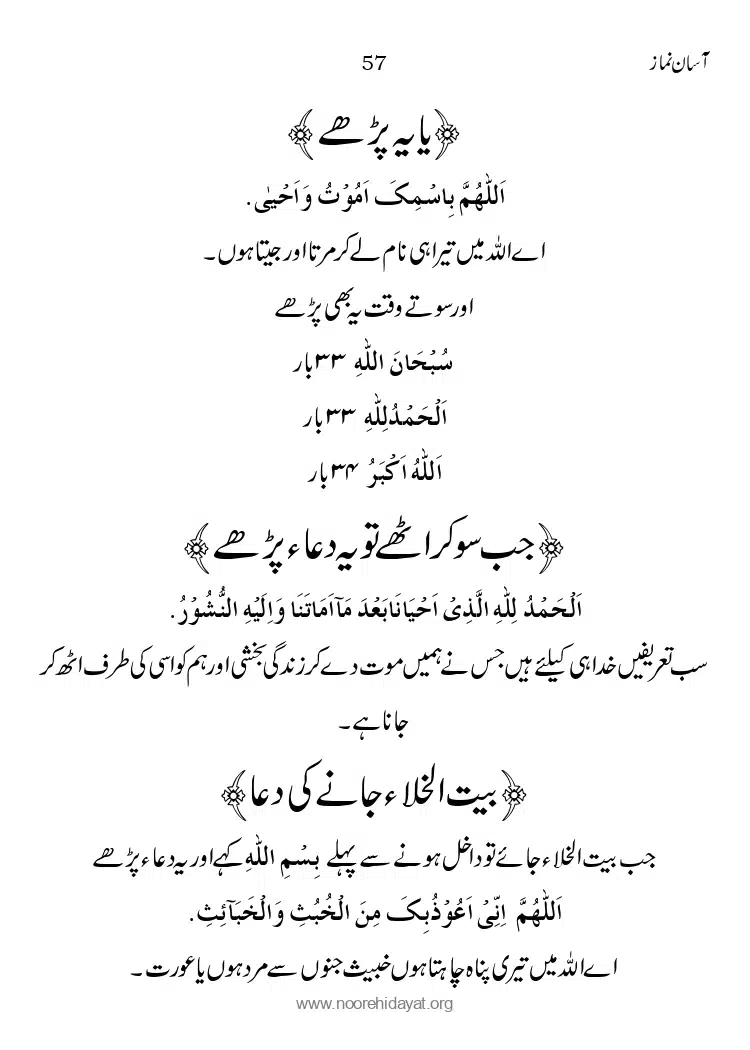 آسان نماز 57
﴿یا یہ پڑھے﴾
اَللّٰهُمَّ بِاسْمِکَ اَمُوْتُ وَ اَحْیٰی.
اے اللہ میں تیرا ہی نام لے کر مرتا اور جیتا ہوں۔
اور سوتے وقت یہ بھی پڑھے
سُبْحَانَ اللّٰهِ ۳۳ بار
اَلْحَمْدُلِلّٰهِ ۳۳ بار
اَللّٰهُ اَکْبَرُ ۳۴ بار
﴿جب سو کر اٹھے تو یہ دعاء پڑھے﴾
اَلْحَمْدُ لِلّٰهِ الَّذِیْ اَحْیَانَا بَعْدَ مَآ اَمَاتَنَا وَ اِلَیْهِ النُّشُوْرُ.
سب تعریفیں خدا ہی کیلئے ہیں جس نے ہمیں موت دے کر زندگی بخشی اور ہم کو اسی کی طرف اٹھ کر
جانا ہے۔
﴿بیت الخلاء جانے کی دعا﴾
جب بیت الخلاء جائے تو داخل ہونے سے پہلے بِسْمِ اللّٰهِ کہے اور یہ دعاء پڑھے
اَللّٰهُمَّ اِنِّیْ اَعُوْذُبِکَ مِنَ الْخُبُثِ وَالْخَبَآئِثِ.
اے اللہ میں تیری پناہ چاہتا ہوں خبیث جنوں سے مرد ہوں یا عورت۔
www.noorehidayat.org